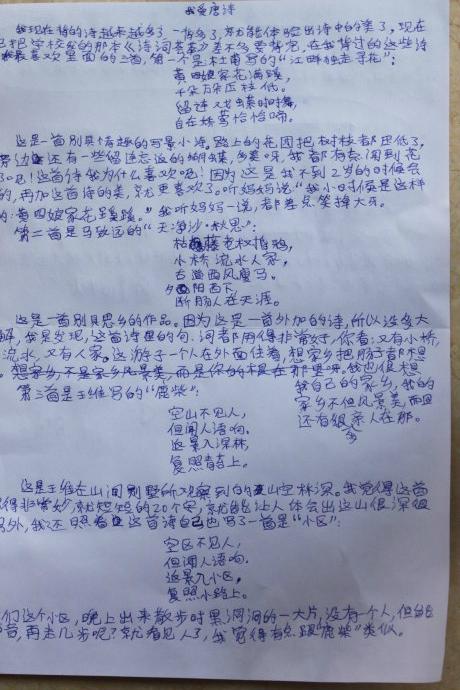 我爱唐诗
我现在背的诗越来越多了,一背多了,就能体验出诗中的美了,现在
已把学校发的那本《诗词荟萃》差不多要背完,在我背过的这些诗
我最喜欢里面的三首,第一个是杜甫写的“江畔独步寻花”:
黄四娘家花满蹊,
千朵万朵压枝低。
留连戏蝶时时舞,
自在娇莺恰恰啼。
这是一首别具有趣的写景小诗,路上的花因把树枝都压低了,
旁边还有一些留连忘返的蝴蝶,多美呀,我都有点闻到花
了吧!这首诗我为什么喜欢呢!因为这是我不到2岁的时候会
的,再加这首诗的美,就更喜欢了。听妈妈说“我小时候是这样
的:黄四娘家花蹊蹊。”我听妈妈一说,都差点笑掉大牙。
第二首是马致远的“天净沙·秋思”:
枯藤老树昏鸦,
小桥流水人家,
古道西风瘦马。
夕阳西下,
断肠人在天涯。
这是一首别具思乡的作品。因为这是一首外加的诗,所以没多大
解,我是发现,这首诗里的句、词都用得非常好,你看:又有小桥,
流水,又有人家。这游子一个人在外面住着,想家乡把肠都想
。想家乡不是家乡风景美,而是你的根在那里呀。我也很想
我自己的家乡,我的
家乡不但风景美而且
还有很多亲人在那。
第三首是王维写的“鹿柴”:
空山不见人,
但闻人语响。
返景入深林,
复照青苔上。
这是王维在山间别墅所观察到的空山林深。我觉得这首
得非常妙,就短短的20个字,就能让人体会出这山很深很
另外,我还照着这首诗自己也写了一首是“小区”:
空区不见人,
但闻人语响。
返景入小区,
复照小路上。
们这个小区,晚上出来散步时黑洞洞的一大片,没有一个人,但
音,再走几步呢?就看见人了,我写得有点跟“鹿柴”类似。